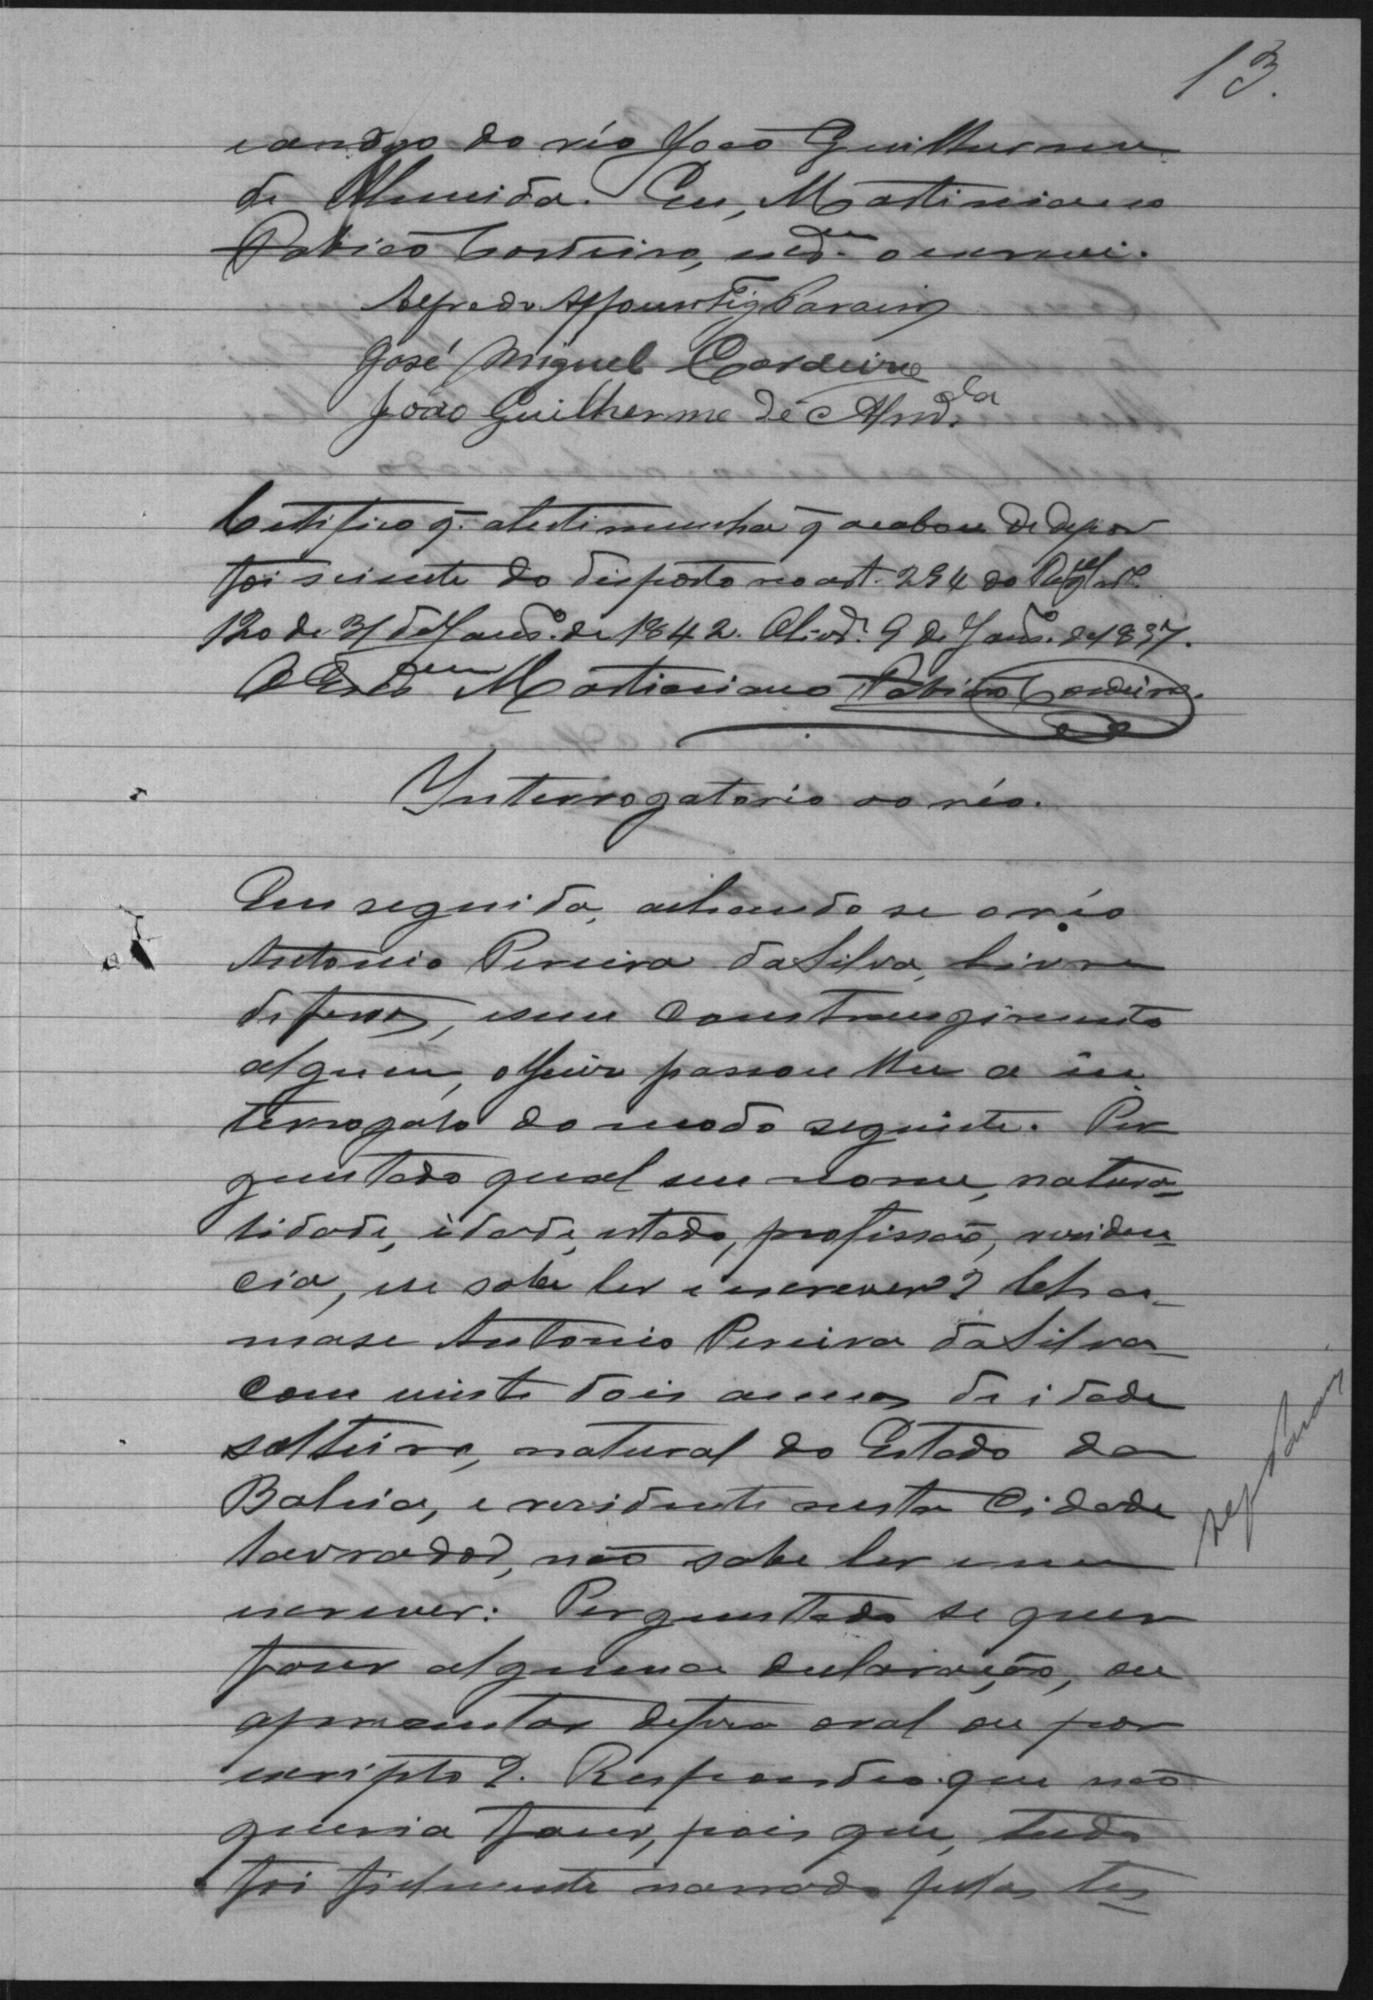 13.
do réo João Guilherme
de Almeida. Eu, Martiniano
Patricio Cordeiro, escr.am o escrevi.
Alfredo Affonso
José Miguel Cordeiro
João Guilherme de Almd.a
Certifico q. a testimunha q acabou de depor
foi sciente do disposto no art. 294 do Regl.
120 de 31 de Janr.o de 1842. 9 de Janr.o de 1897.
O Escr.am Martiniano Patricio Cordeiro.
Interrogatorio ao réo.
Em seguida, achando se o réo
Antonio Pereira da Silva, livre
de ferros, e sem constrangimento
algum, o Juiz passou lhe a in
terrogalo do modo seguinte. Per
guntado qual seu nome, natura-
lidade, idade, estado, profissão, residen-
cia, e se sabe ler e escrever? Cha-
mase Antonio Pereira da Silva
com vinte dois annos de idade
solteiro, natural do Estado da
Bahia, e residente nesta Cidade
lavrador, não sabe ler e nem
escrever: Perguntado se quer
fazer alguma declaração, ou
apresentar defesa oral ou por
escripto?. Respondeo que não
queria fazer, pois que, tudo
foi fielmente narrado pelas tes